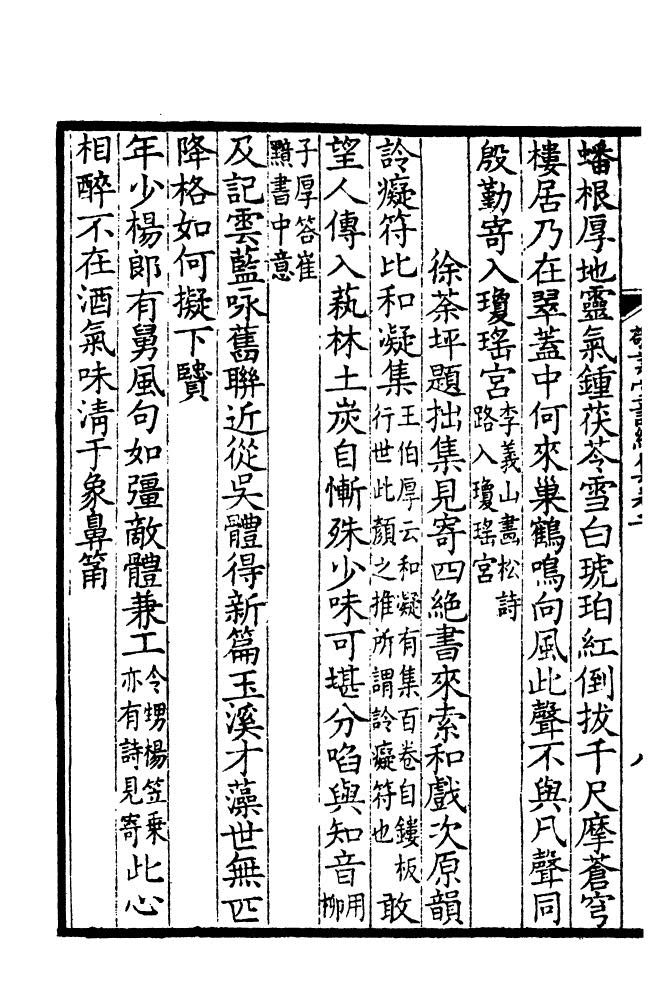 蟠根厚地靈氣鍾茯苓雪白琥珀紅倒拔千尺摩蒼穹
樓居乃在翠蓋中何來巢鶴鳴向風此聲不與凡聲同
殷勤寄入瓊瑤宮李義山畫松詩路入瓊瑤宮
徐茶坪題拙集見寄四絕書來索和戲次原韻
詅癡符比和凝集王伯厚云和凝有集百卷自鏤板行世此顏之推所謂詅癡符也敢
望人傳入蓺林土炭自慚殊少味可堪分㗖與知音用柳
子厚答崔黯書中意
及記雲藍咏舊聯近從吳體得新篇玉溪才藻世無匹
降格如何擬下賢
年少楊郎有舅風句如彊敵體兼工令甥楊笠乘亦有詩見寄此心
相醉不在酒氣味淸于象鼻筩
八